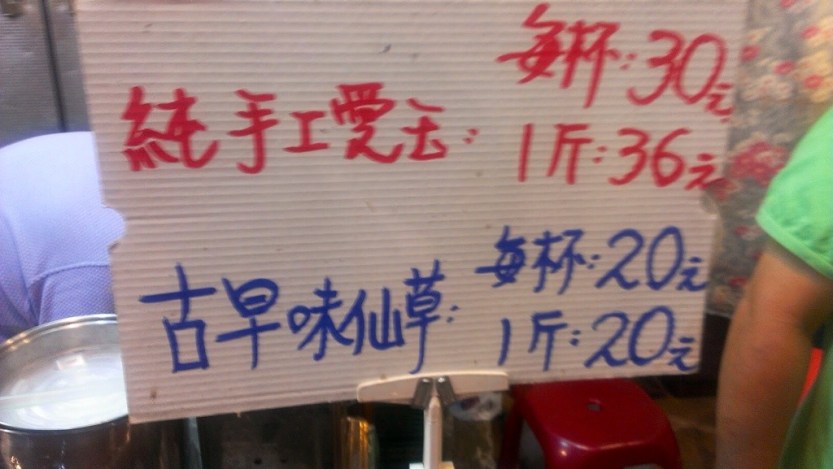 每杯:30元
純手工愛玉:
1斤:36元
每杯:20元
古早味仙草:
1斤:20元